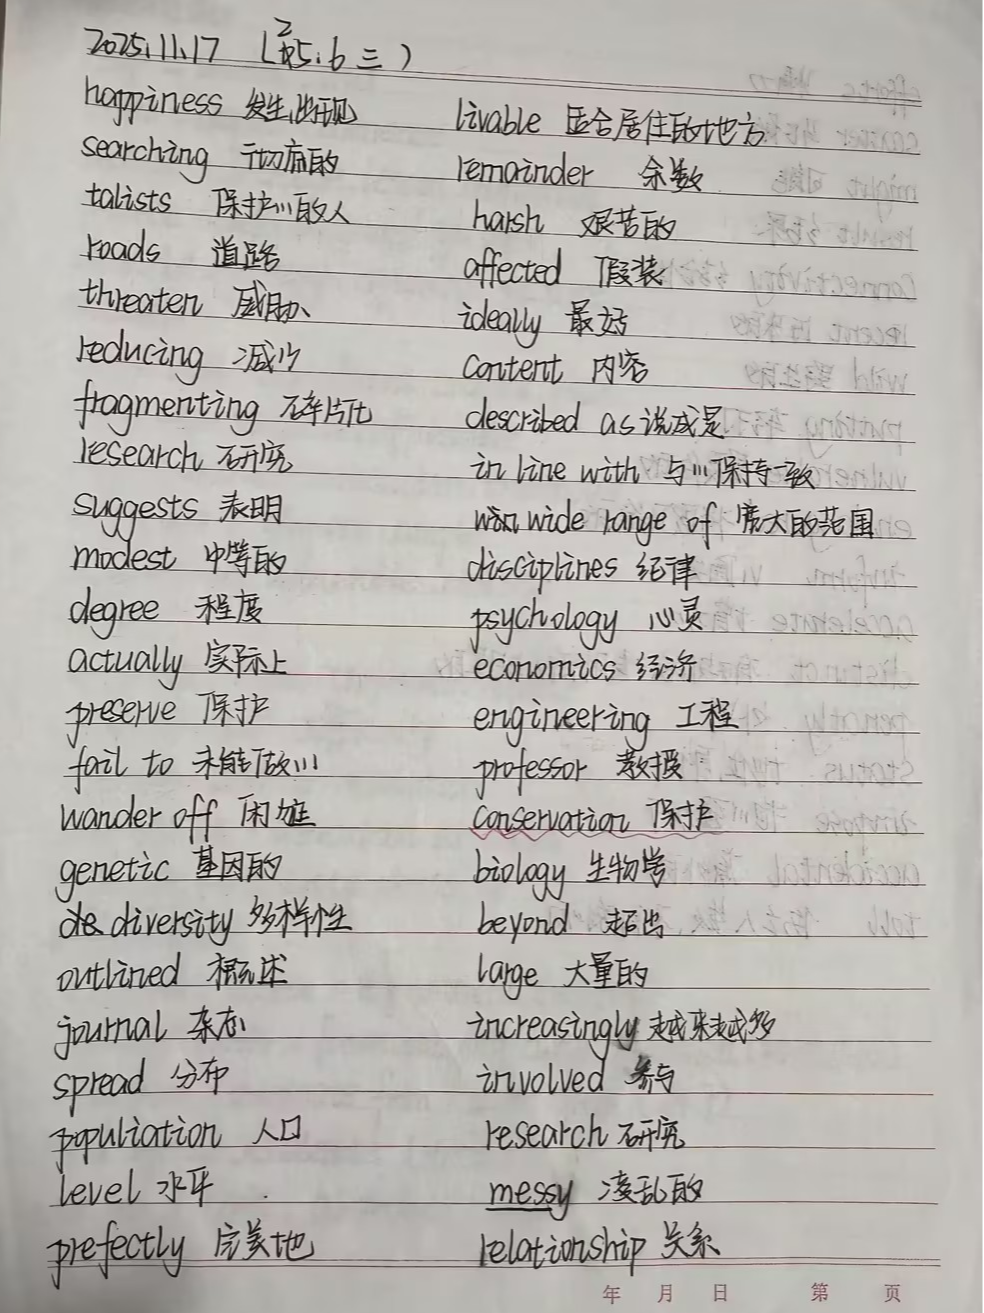 2025.11.17
happiness 发生,出现
searching 寻
talists 保护…的人
roads 道路
threaten 威胁
reducing 减少
fragmenting 碎片化
research 研究
suggests 表明
modest 中等的
degree 程度
actually 实际上
preserve 保护
fail to 未能做…
wander off 闲逛
genetic 基因的
diversity 多样性
outlined 概述
journal 杂志
spread 分布
populiation 人口
level 水平
prefectly 完美地
livable 适合居住的地方
remainder 余数
harsh 艰苦的
affected 假装
ideally 最好
content 内容
described as 说成是
in line with 与…保持一致
wide range of 庞大的范围
disciplines 纪律
psychology 心灵
economics 经济
engineering 工程
professor 教授
conservation 保护
biology 生物学
beyond 超出
large 大量的
increasingly 越来越多
involved 参与
research 研究
messy 凌乱的
relationship 关系
年 月 日 第 页